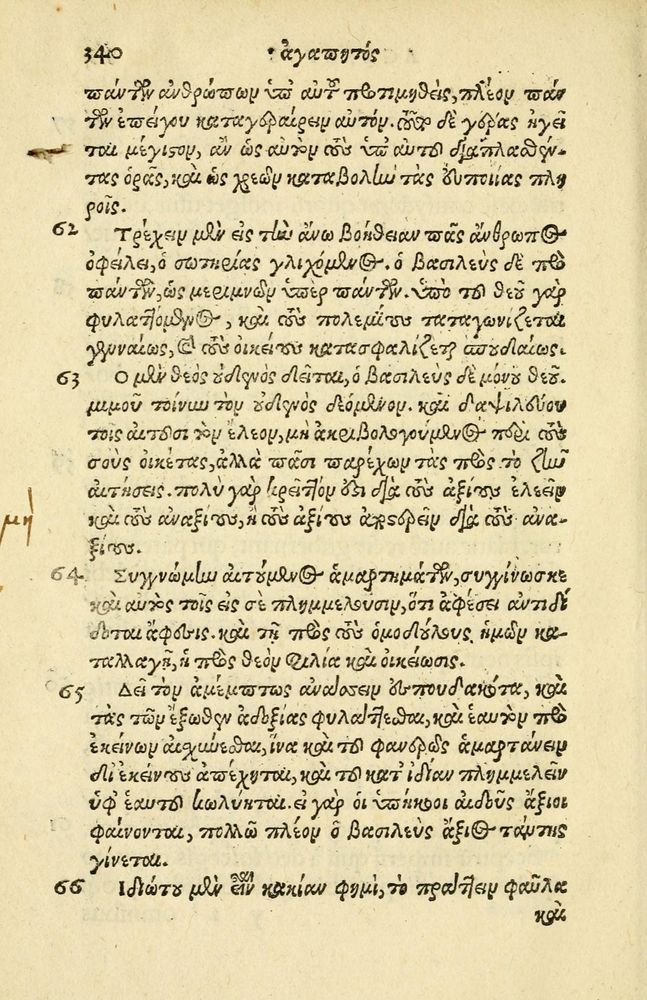 340 ἀγαπητός
πάντων ἀνθρώπων ὑπ' αὐτοῦ προτιμηθεὶς, πλέον πάν-
των ἐπείγου καταγεραίρειν αὐτόν. οὗτος δὲ γέρας ἡγεῖ
ται μέγιστον, ἂν ὡς αὐτὸν τοὺς ὑπ' αὐτοῦ διαπλασθέν-
τας ὁρᾷς, καὶ ὡς χρεῶν καταβολὴν τὰς εὐποιίας πλη
ροῖς.
62 Τρέχειν μὲν εἰς τὴν ἄνω βοήθειαν πᾶς ἄνθρωπος
ὀφείλει, ὁ σωτηρίας γλιχόμενος. ὁ βασιλεὺς δὲ πρὸ
πάντων, ὡς μεριμνῶν ὑπὲρ πάντων. ὑπὸ τοῦ θεοῦ γὰρ
φυλαττόμενος, καὶ τοὺς πολεμίους καταγωνίζεται
γενναίως, καὶ τοὺς οἰκείους κατασφαλίζεται σπουδαίως.
63 Ὁ μὲν θεὸς οὐδενὸς δεῖται, ὁ βασιλεὺς δὲ μόνου θεοῦ.
μιμοῦ τοίνυν τὸν οὐδενὸς δεόμενον. καὶ δαψιλεύου
τοῖς αἰτοῦσι τὸν ἔλεον, μὴ ἀκριβολογούμενος περὶ τοὺς
σοὺς οἰκέτας, ἀλλὰ πᾶσι παρέχων τὰς πρὸς τὸ ζῆν
αἰτήσεις. πολὺ γὰρ κρεῖττον ἔστι διὰ τοὺς ἀξίους ἐλεεῖν
μὴ
καὶ τοὺς ἀναξίους, ἢ τοὺς ἀξίους ἀποστερεῖν διὰ τοὺς ἀνα-
ξίους.
64 Συγγνώμην αἰτούμενος ἁμαρτημάτων, συγγίνωσκε
καὶ αὐτὸς τοῖς εἰς σὲ πλημμελοῦσιν, ὅτι ἀφέσει ἀντιδί
δοται ἄφεσις. καὶ τῇ πρὸς τοὺς ὁμοδούλους ἡμῶν κα-
ταλλαγῇ, ἡ πρὸς θεὸν φιλία καὶ οἰκείωσις.
65 Δεῖ τὸν ἀμέμπτως ἀνάσσειν ἐσπουδακότα, καὶ
τὰς τῶν ἔξωθεν ἀδοξίας φυλάττεσθαι, καὶ ἑαυτὸν πρὸ
ἐκείνων αἰσχύνεσθαι, ἵνα καὶ τοῦ φανερῶς ἁμαρτάνειν
δι' ἐκείνους ἀπέχηται, καὶ τοῦ κατ' ἰδίαν πλημμελεῖν
ὑφ' ἑαυτοῦ κωλύηται. εἰ γὰρ οἱ ὑπήκοοι αἰδοῦς ἄξιοι
φαίνονται, πολλῷ πλέον ὁ βασιλεὺς ἄξιος ταύτης
γίνεται.
66 Ἰδιώτου μὲν εἶναι κακίαν φημὶ, τὸ πράττειν φαῦλα
καὶ